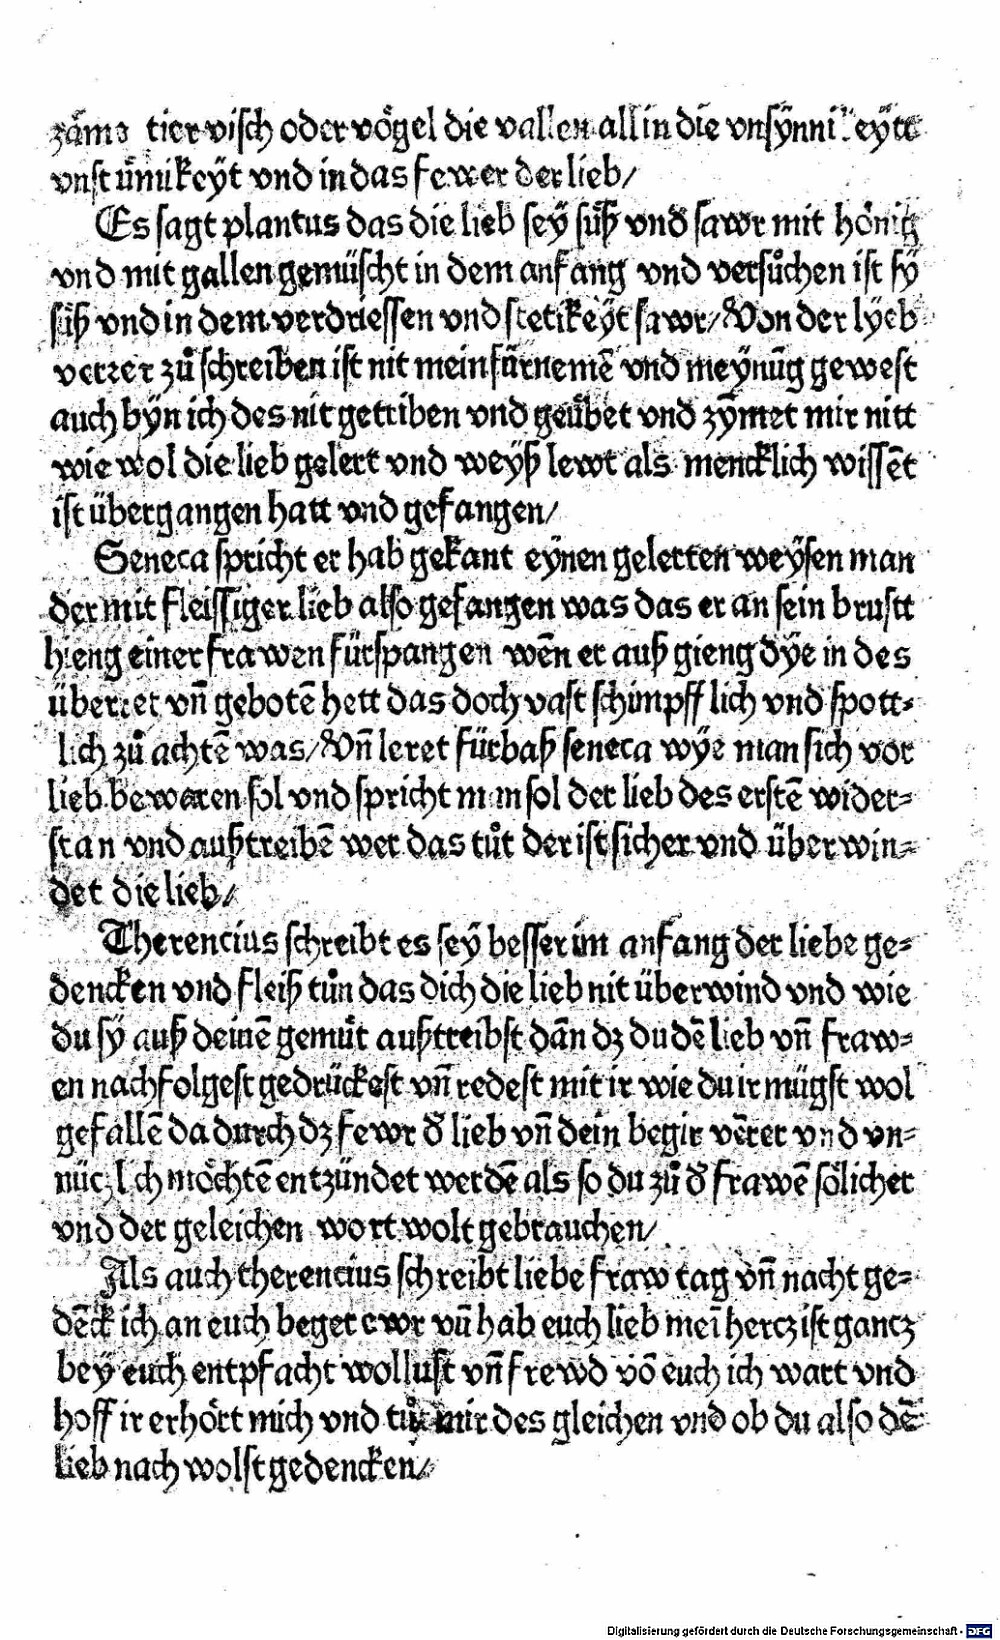 zäms tier visch oder vögel die vallen all in die vnsynnikeytt
vnst vnd in das fewer der lieb/
Es sagt plantus das die lieb sey süß vnd sawr mit hönig
vnd mit gallen gemüscht in dem anfang vnd versůchen ist sÿ
süß vnd in dem verdriessen vnd stetikeÿt sawr/ Von der lyeb
verrer zů schreiben ist nit mein fürnemē vnd meynūg gewest
auch bÿn ich des nit getriben vnd geübet vnd zymet mir nitt
wie wol die lieb gelert vnd weyß lewt als mencklich wissēt
ist übergangen hatt vnd gefangen/
Seneca spricht er hab gekant eynen gelerten weysen man
der mit fleissiger lieb also gefangen was das er an sein brustt
hieng einer frawen fürspangen wēn er auß gieng dÿe in des
überret vn̄ gebotē hett das doch vast schimpfflich vnd spott⸗
lich zů achtē was/ Vn̄ leret fürbaß seneca wÿe man sich vor
lieb bewaren sol vnd spricht man sol der lieb des erstē wider⸗
stan vnd außtreibē wer das tůt der ist sicher vnd überwin⸗
det die lieb/
Therencius schreibt es seÿ besser im anfang der liebe ge⸗
dencken vnd fleiß tůn das dich die lieb nit überwind vnd wie
du sÿ auß deinē gemüt außtreibst dān dz du dē lieb vn̄ fraw⸗
en nachfolgest gedrückest vn̄ redest mit ir wie du ir mügst wol
gefallē da durch dz fewr đ lieb vn̄ dein begir vērer vnd vn⸗
nüczlich möchtē entzündet werdē als so du zů đ frawē sölicher
vnd der geleichen wort wolt gebrauchen/
Als auch therencius schreibt liebe fraw tag vn̄ nacht ge⸗
dēck ich an euch beger ewr vn̄ hab euch lieb meī hercz ist gancz
bey euch entpfacht wollust vn̄ frewd vō euch ich wart vnd
hoff ir erhört mich vnd tůt mir des gleichen vnd ob du also dē
lieb nach wolst gedencken/
Digitalisierung gefördert durch die Deutsche Forschungsgemeinschaft - DFG